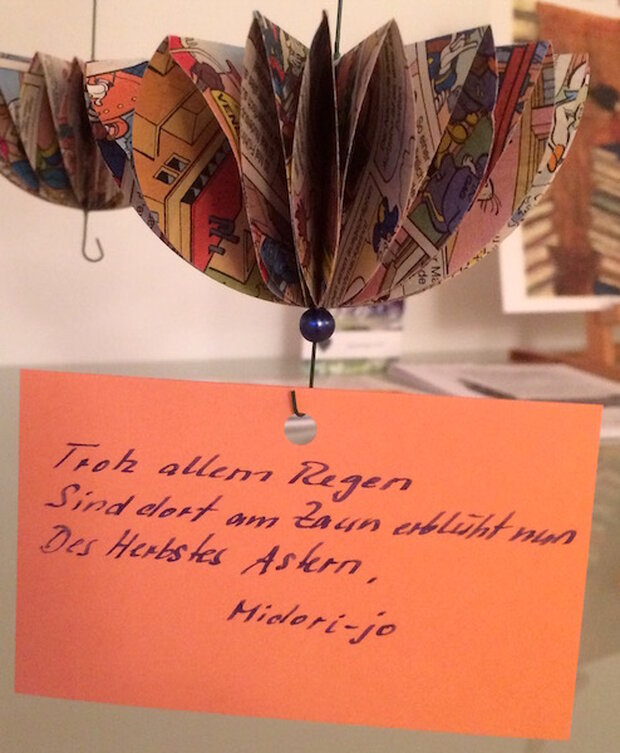 Trotz allem Regen
Sind dort am Zaun erblüht nun
Des Herbstes Astern,
Midori-jo